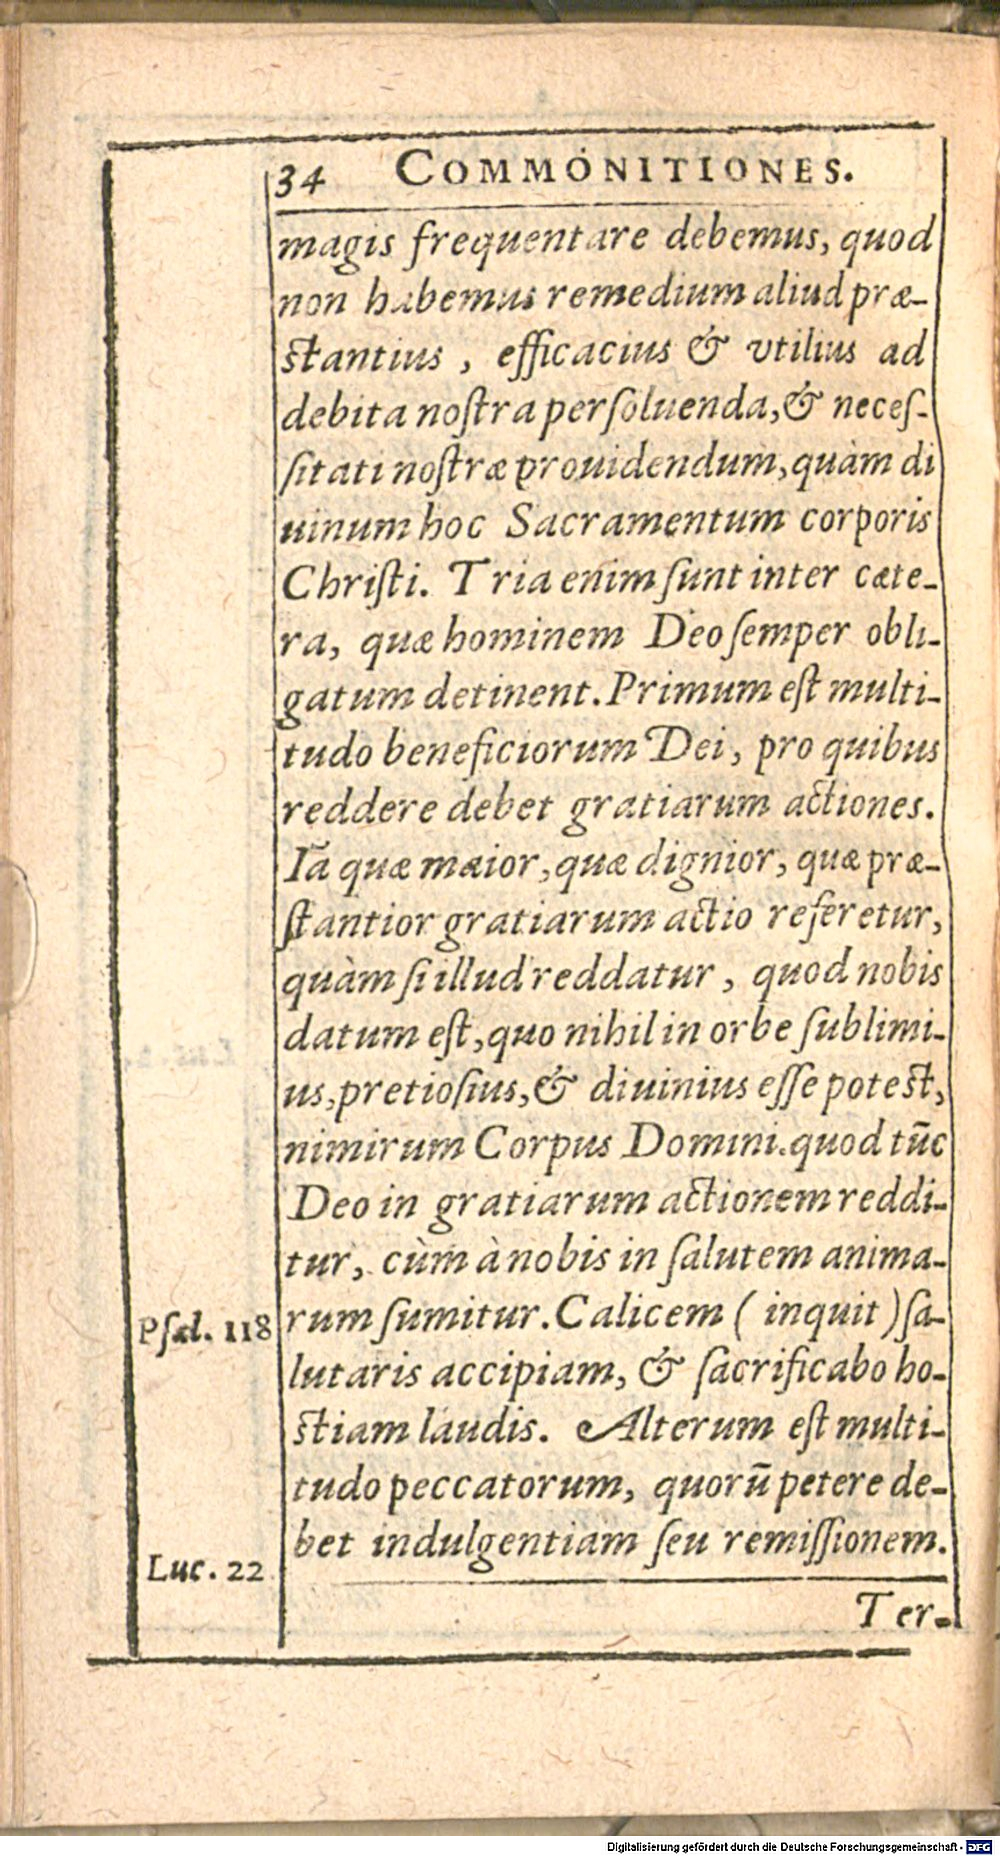 34 COMMONITIONES.
magis frequentare debemus, quod
non habemus remedium aliud præ-
ſtantius, efficacius & vtilius ad
debita noſtra perſoluenda, & neceſ-
ſitati noſtræ prouidendum, quàm di
uinum hoc Sacramentum corporis
Chriſti. Tria enim ſunt inter cæte-
ra, quæ hominem Deo ſemper obli-
gatum detinent. Primum eſt multi-
tudo beneficiorum Dei, pro quibus
reddere debet gratiarum actiones.
Iā quæ maior, quæ dignior, quæ præ-
ſtantior gratiarum actio referetur,
quàm ſi illud reddatur, quod nobis
datum eſt, quo nihil in orbe ſublimi-
us, pretioſius, & diuinius eſſe poteſt,
nimirum Corpus Domini. quod tūc
Deo in gratiarum actionem reddi-
tur, cùm à nobis in ſalutem anima-
Pſal. 118 rum ſumitur. Calicem ( inquit ) ſa-
lutaris accipiam, & ſacrificabo ho-
ſtiam laudis. Alterum eſt multi-
tudo peccatorum, quorū petere de-
bet indulgentiam ſeu remiſſionem.
Luc. 22
Ter-
Digitalisierung gefördert durch die Deutsche Forschungsgemeinschaft - DFG